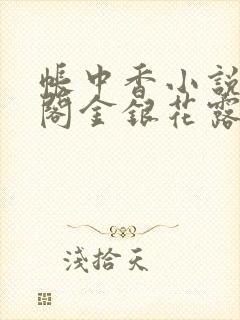 帳中香小說
閣金銀花露
淺拾天